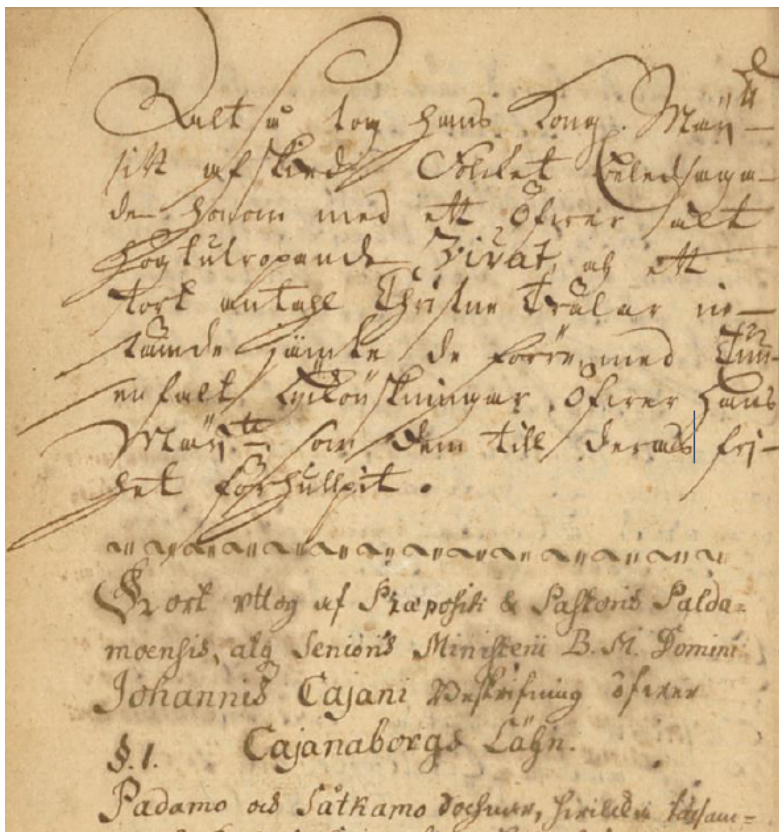 altså tog hans Kong. Maij:tt
sitt afskied Folcket beledsaga-
de honom med ett öfwer alt
högtutropande Vivat, och ett
stort antahl Christne Trälar in-
stämde jämte de förre, med Tuu-
senfalt lyckönskningar öfwer hans
Maij:tt som dem till deras frj-
het förhullpit.
Kort uttog af Præpositi & Pastoris Palda-
moensis, atq Senioris Ministerii B. M. Domini
Johannis Cajani Beskrifning öfwer
§. 1. Cajanaborgs Lähn.
Padamo och Såtkamo Sochnar, hwilcka